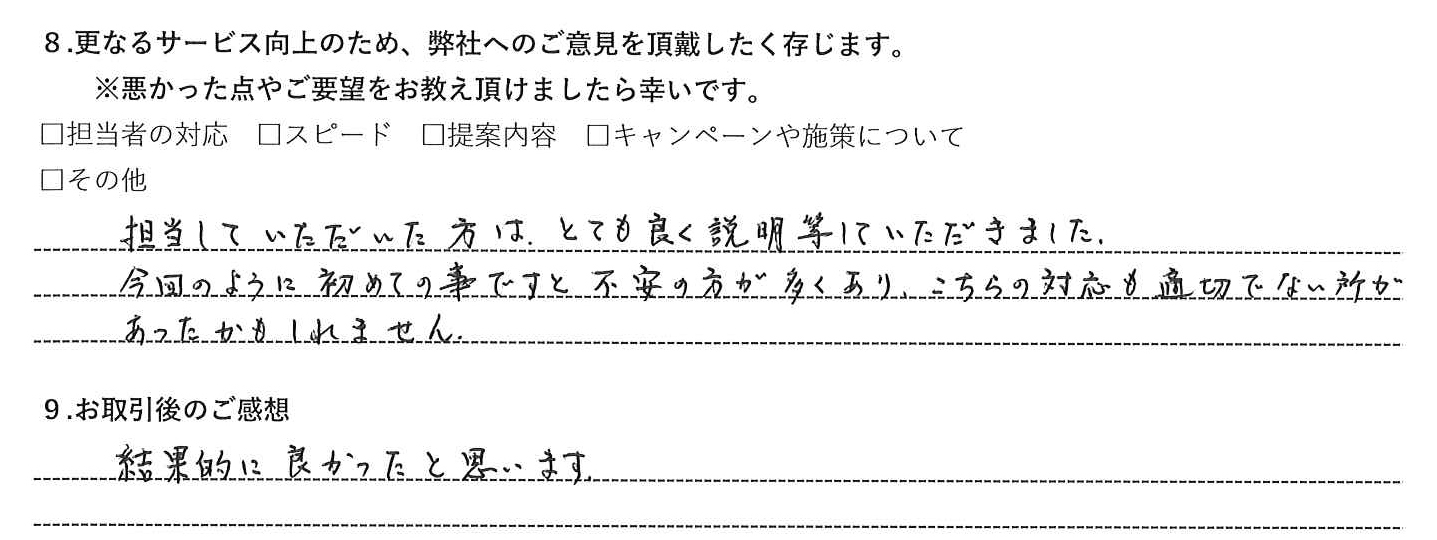 ８.更なるサービス向上のため、弊社へのご意見を頂戴したく存じます。
※悪かった点やご要望をお教え頂けましたら幸いです。
□担当者の対応　□スピード　□提案内容　□キャンペーンや施策について
□その他
担当していただいた方は、とても良く説明等していただきました。
今回のように初めての事ですと不安の方が多くあり、こちらの対応も適切でない所が
あったかもしれません。
９.お取引後のご感想
結果的に良かったと思います。